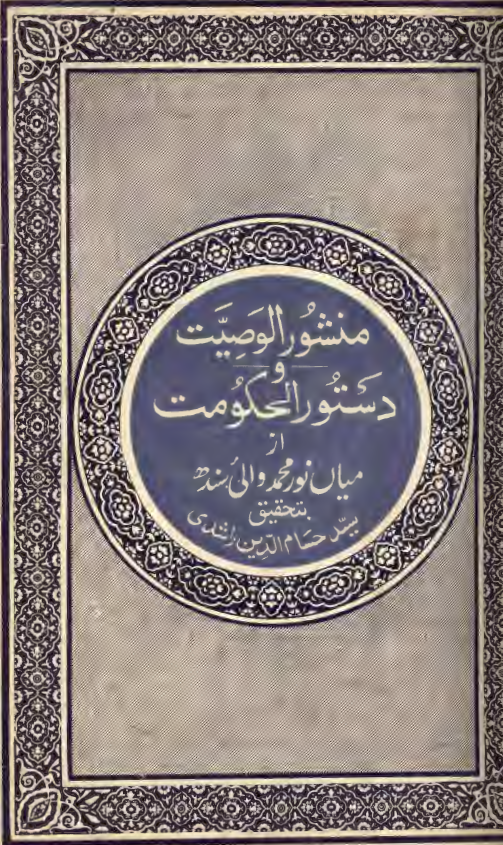 منشُور الوَصِیَّت
و
دستُور الحکُومت
از
میاں نور محمد والئ سندھ
بتحقیق
سیّد حسام الدّین راشدی